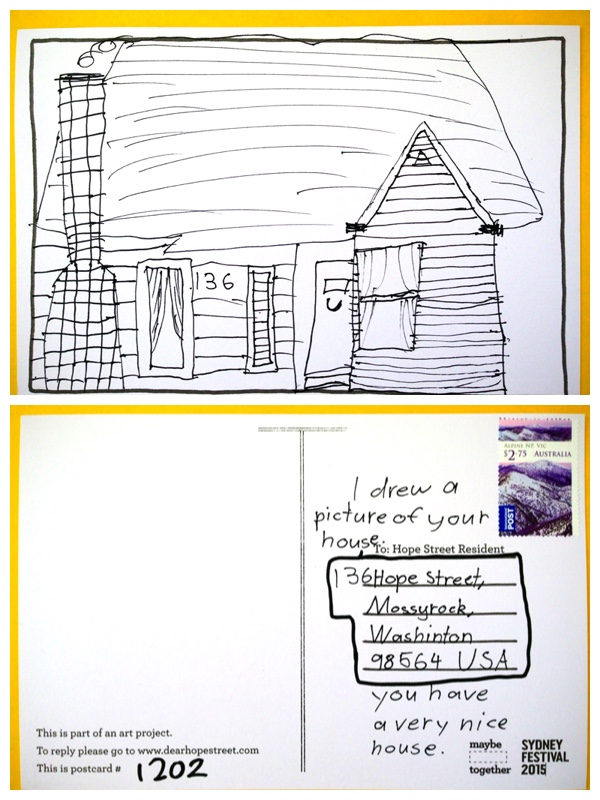 136
ALPINE NP, VIC
$2.75 AUSTRALIA
POST
I drew a
picture of your
house.
To: Hope Street Resident
136 Hope Street,
Mossyrock,
Washinton
98564 USA
you have
a very nice
house.
This is part of an art project.
To reply please go to www.dearhopestreet.com
This is postcard # 1202
maybe
together
SYDNEY
FESTIVAL
2015